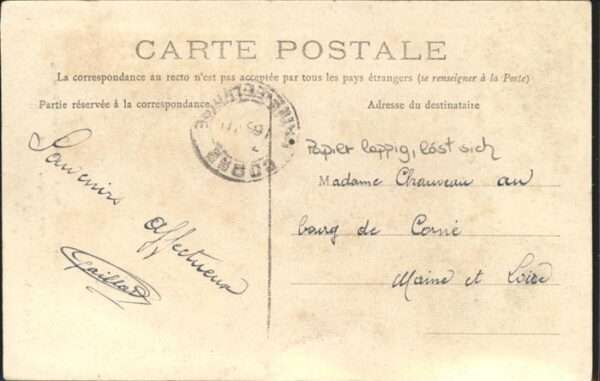 CARTE POSTALE
La correspondance au recto n'est pas acceptée par tous les pays étrangers (se renseigner à la Poste)
Partie réservée à la correspondance
Adresse du destinataire
Papier lappig, löst sich
Souvenirs
affectueux
Gaillard
Madame Chauveau au
bourg de Corné
Maine et Loire